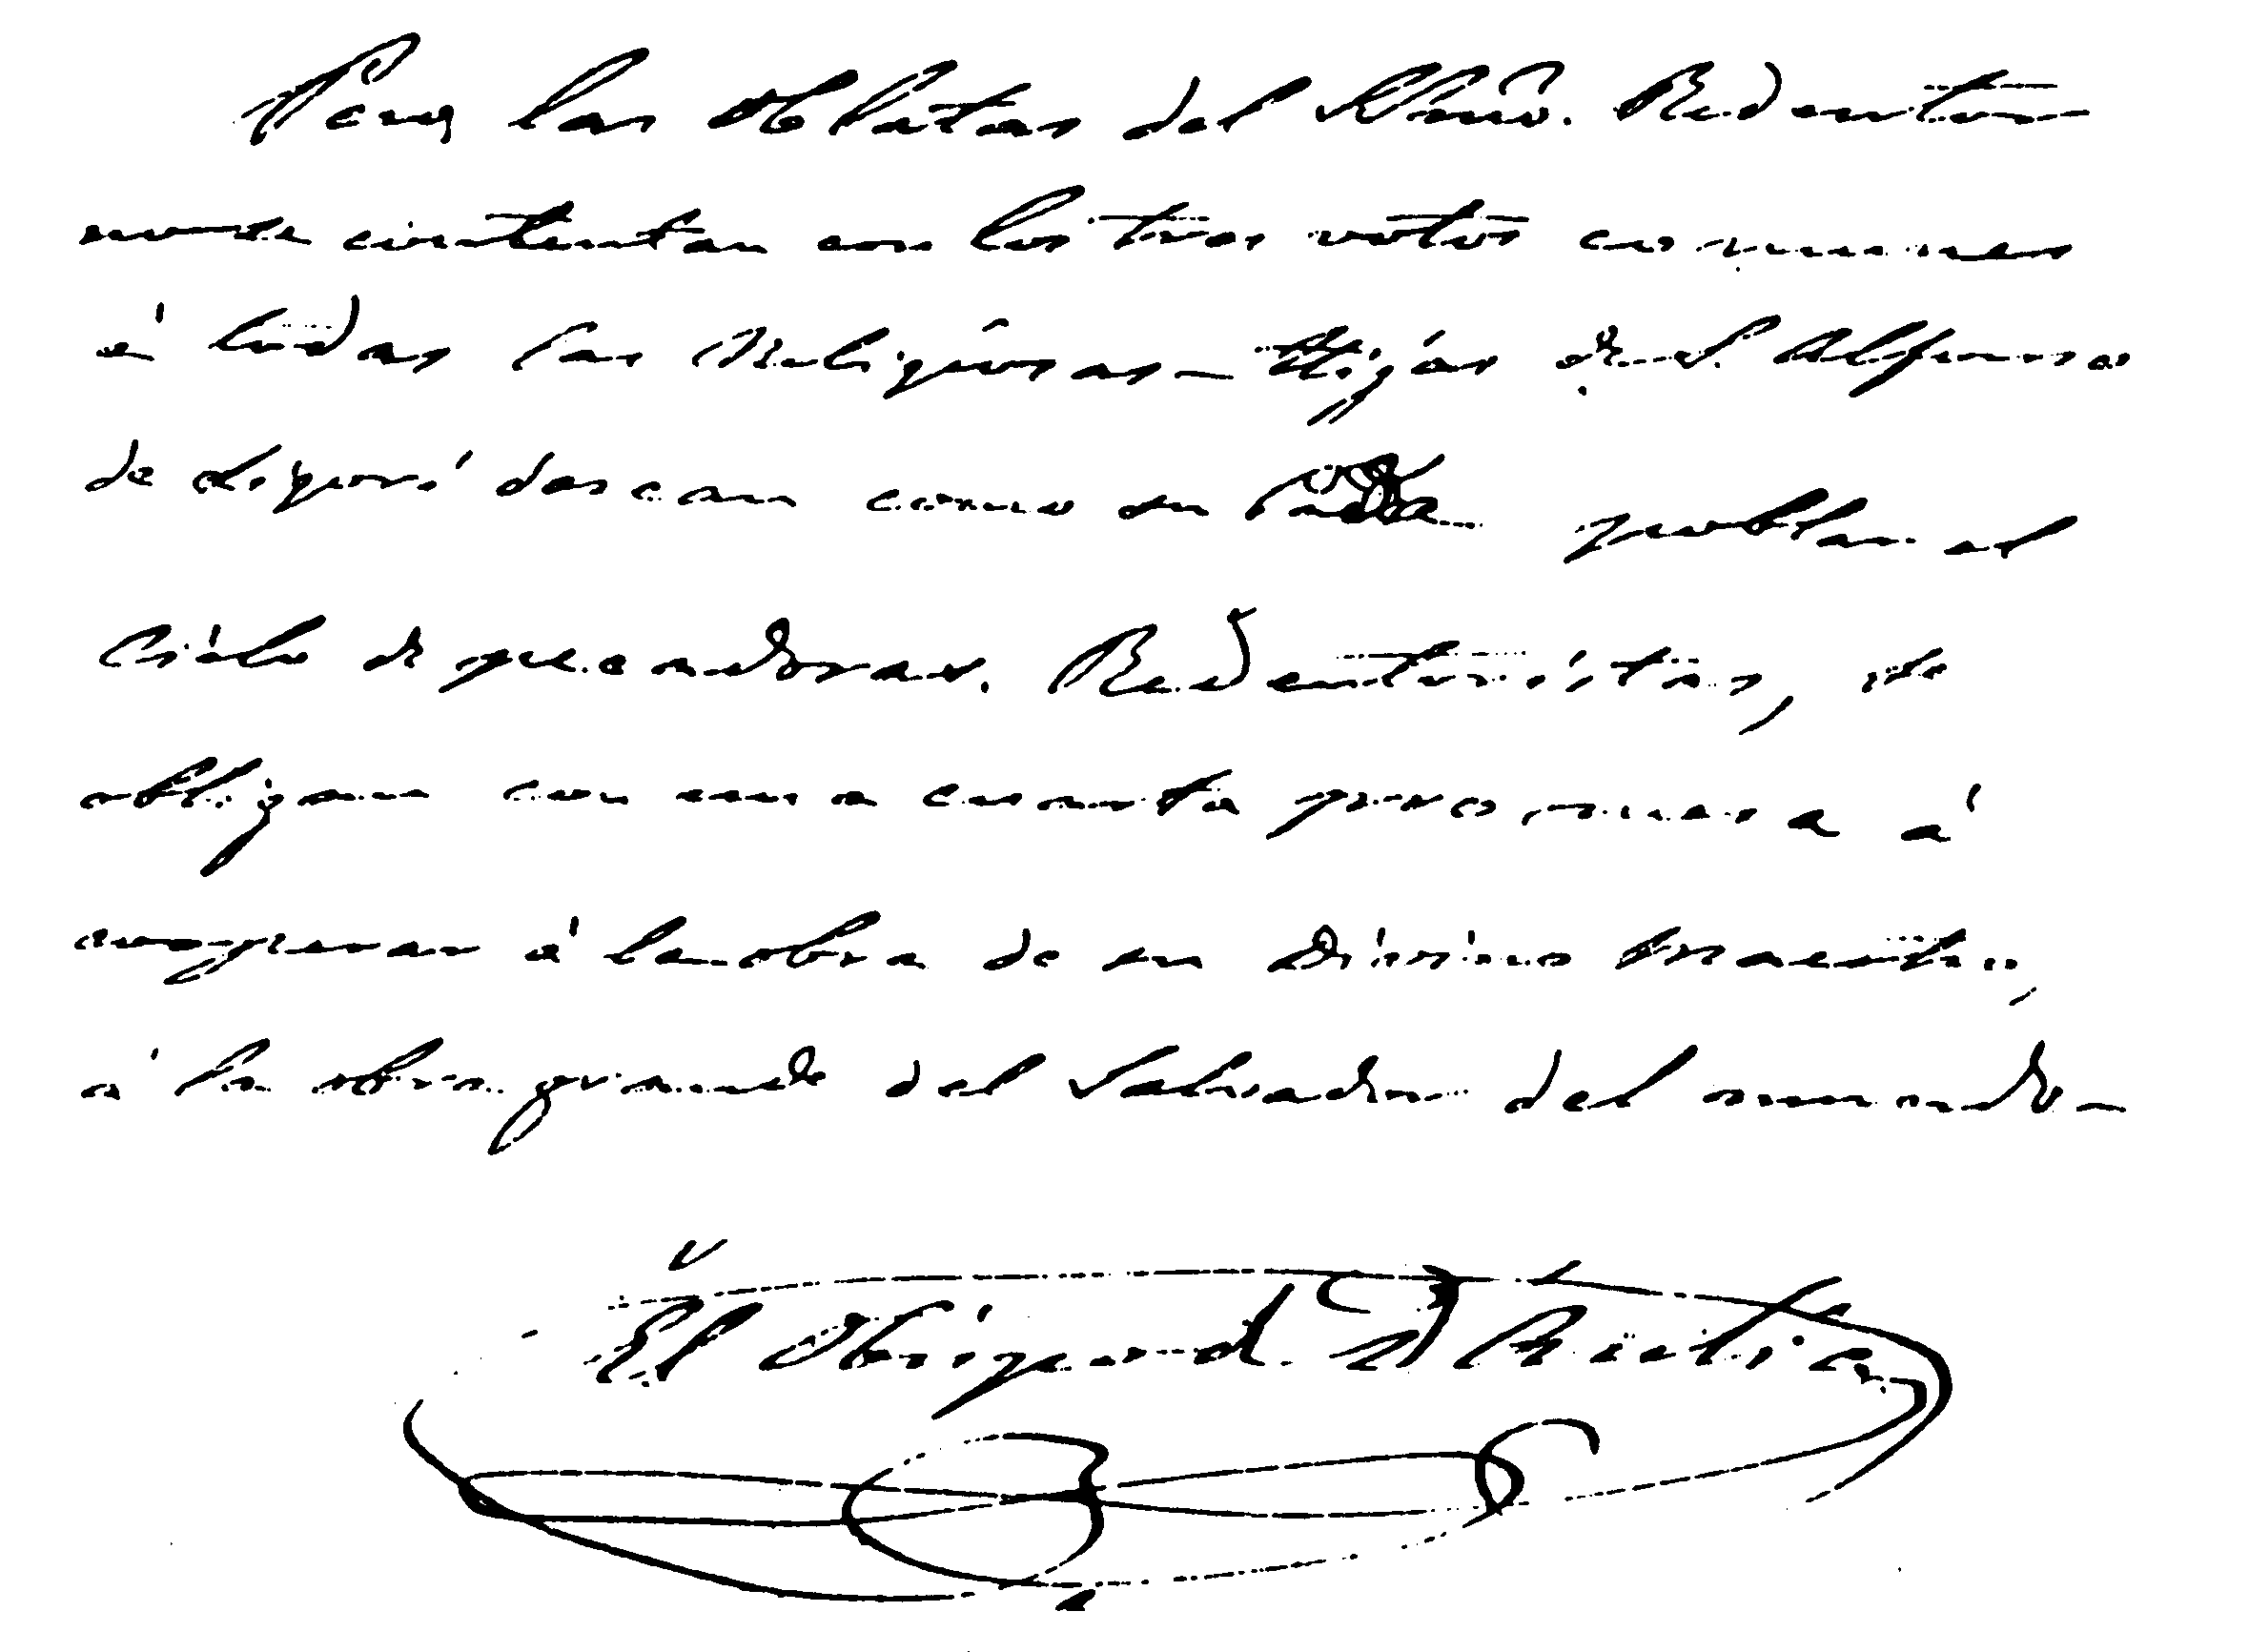 Pero las Oblatas del Stmo. Redentor
no se contentan con los tres votos comunes
á todas las Religiosas_ Hijas de S. Alfonso
de Ligori desean como su Padre poblar el
Cielo de pecadoras. Redentoristas, se
obligan con una cuarta promesa á
cooperar á la obra de su Divino Maestro,
á la obra grande del Salvador del mundo_
El Obispo de